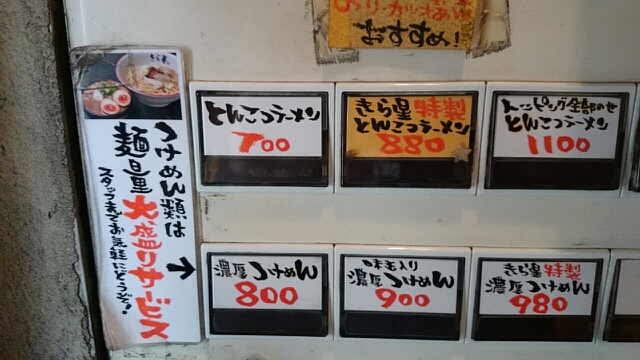 おすすめ!
とんこつラーメン
700
きら星 特製
とんこつラーメン
880
トッピング全部のせ
とんこつラーメン
1100
つけめん類は
麺量大盛りサービス
スタッフまでお気軽にどうぞ!
濃厚つけめん
800
味玉入り
濃厚つけめん
900
きら星 特製
濃厚つけめん
980